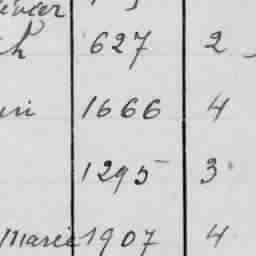 627 2
1666 4
1295 3
Marie 1907 4